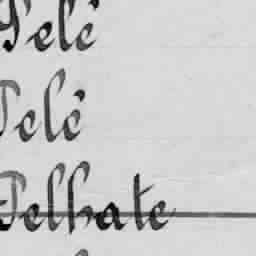 Pelé
Pelé
Pelhate